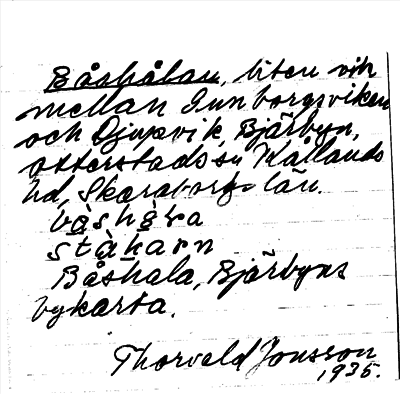 Båshålan, liten vik
mellan Gunborgsviken
och Djupvik, Bjärbyn,
Otterstads sn Kållands
hd, Skaraborgs län.
båshåla
ståkarn
Båshala, Bjärbyns
bykarta.
Thorvald Jonsson
1935.